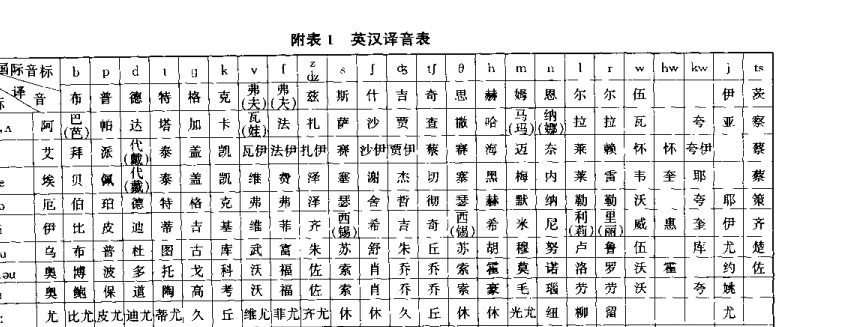 附表 1 英汉译音表
国际音标 b p d t g k v f z dz s ʃ ʤ tʃ θ h m n l r w hw kw j ts
译音 布 普 德 特 格 克 弗(夫) 弗(夫) 兹 斯 什 吉 奇 思 赫 姆 恩 尔 尔 伍 伊 茨
ʌ 阿 巴(芭) 帕 达 塔 加 卡 瓦(娃) 法 扎 萨 沙 贾 查 撒 哈 马(玛) 纳(娜) 拉 拉 瓦 夸 亚 察
艾 拜 派 代(戴) 泰 盖 凯 瓦伊 法伊 扎伊 赛 沙伊 贾伊 蔡 赛 海 迈 奈 莱 赖 怀 怀 夸伊 蔡
e 埃 贝 佩 代(戴) 泰 盖 凯 维 费 泽 塞 谢 杰 切 塞 黑 梅 内 莱 雷 韦 奎 耶 蔡
厄 伯 珀 德 特 格 克 弗 弗 泽 瑟 舍 哲 彻 瑟 赫 默 纳 勒 勒 沃 夸 耶 策
伊 比 皮 迪 蒂 吉 基 维 菲 齐 西(锡) 希 吉 奇 西(锡) 希 米 尼 利(莉) 里(丽) 威 惠 奎 伊 齐
u 乌 布 普 杜 图 古 库 武 富 朱 苏 舒 朱 丘 苏 胡 穆 努 卢 鲁 伍 库 尤 楚
əu 奥 博 波 多 托 戈 科 沃 福 佐 索 肖 乔 乔 索 霍 莫 诺 洛 罗 沃 霍 约 佐
奥 鲍 保 道 陶 高 考 沃 福 佐 索 肖 乔 乔 索 豪 毛 瑙 劳 劳 沃 夸 姚
尤 比尤 皮尤 迪尤 蒂尤 久 丘 维尤 菲尤 齐尤 休 休 久 丘 休 休 光尤 纽 柳 留 尤